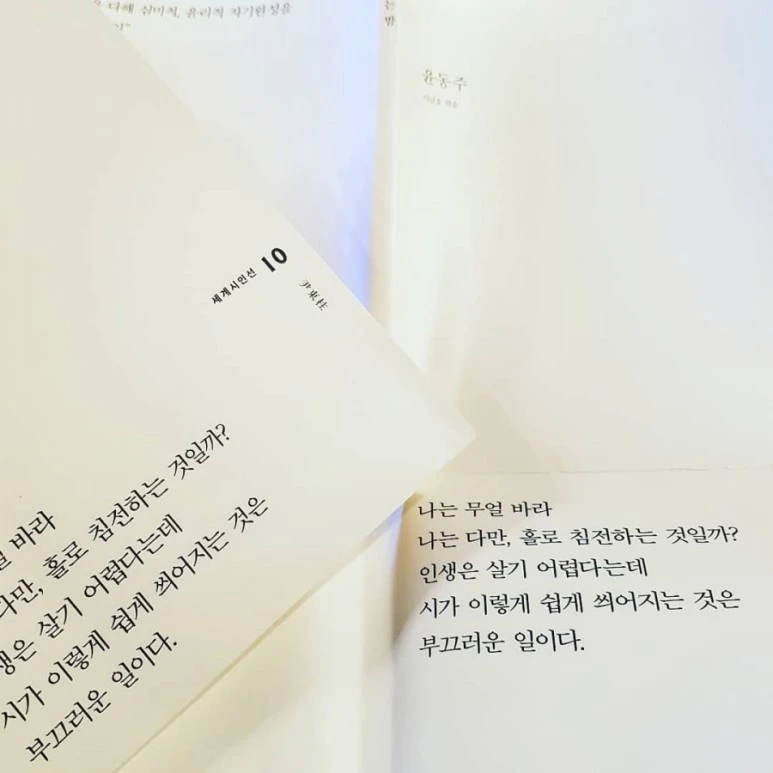 다해 심미적, 윤리적 자기완성을
는
윤동주
세계시인선 10
尹東柱
얼 바라
다만, 홀로 침전하는 것일까?
생은 살기 어렵다는데
시가 이렇게 쉽게 씌어지는 것은
부끄러운 일이다.
나는 무얼 바라
나는 다만, 홀로 침전하는 것일까?
인생은 살기 어렵다는데
시가 이렇게 쉽게 씌어지는 것은
부끄러운 일이다.